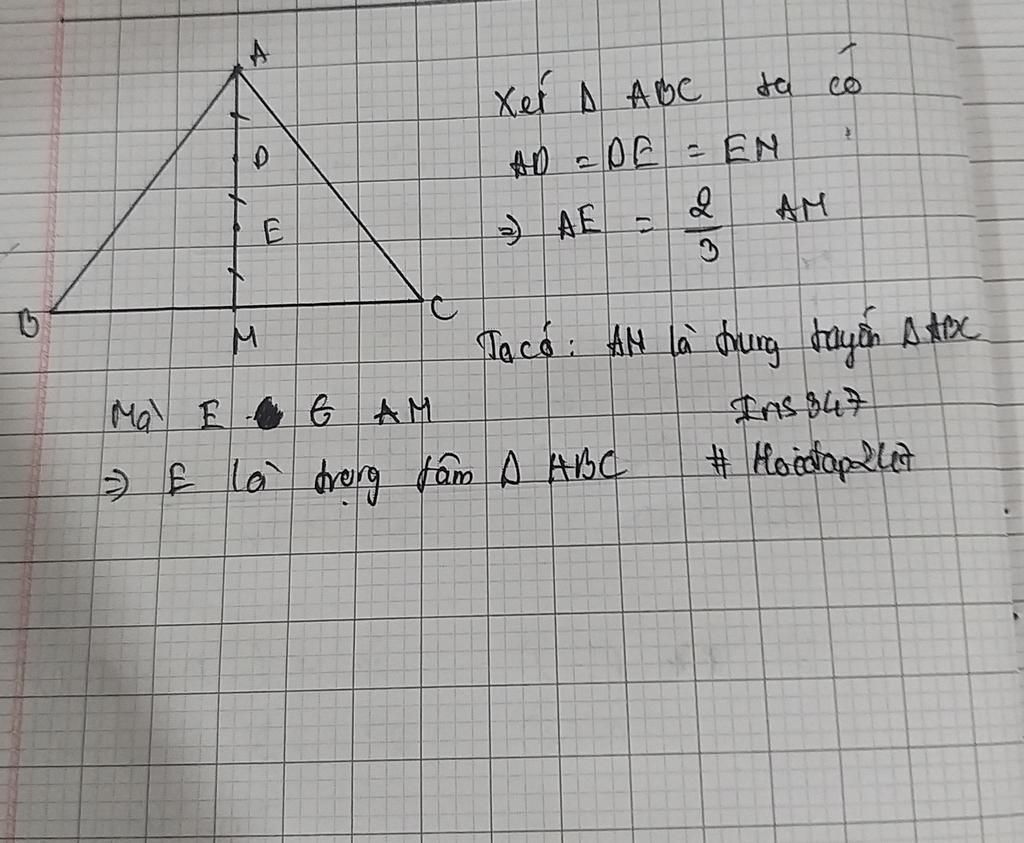 A
D
E
B
M
C
Xét Δ ABC ta có
AD = DE = EM
⇒ AE = 2/3 AM
Ta có: AM là trung tuyến Δ ABC
Mà E ∈ AM
⇒ E là trọng tâm Δ ABC
#Hoidap247